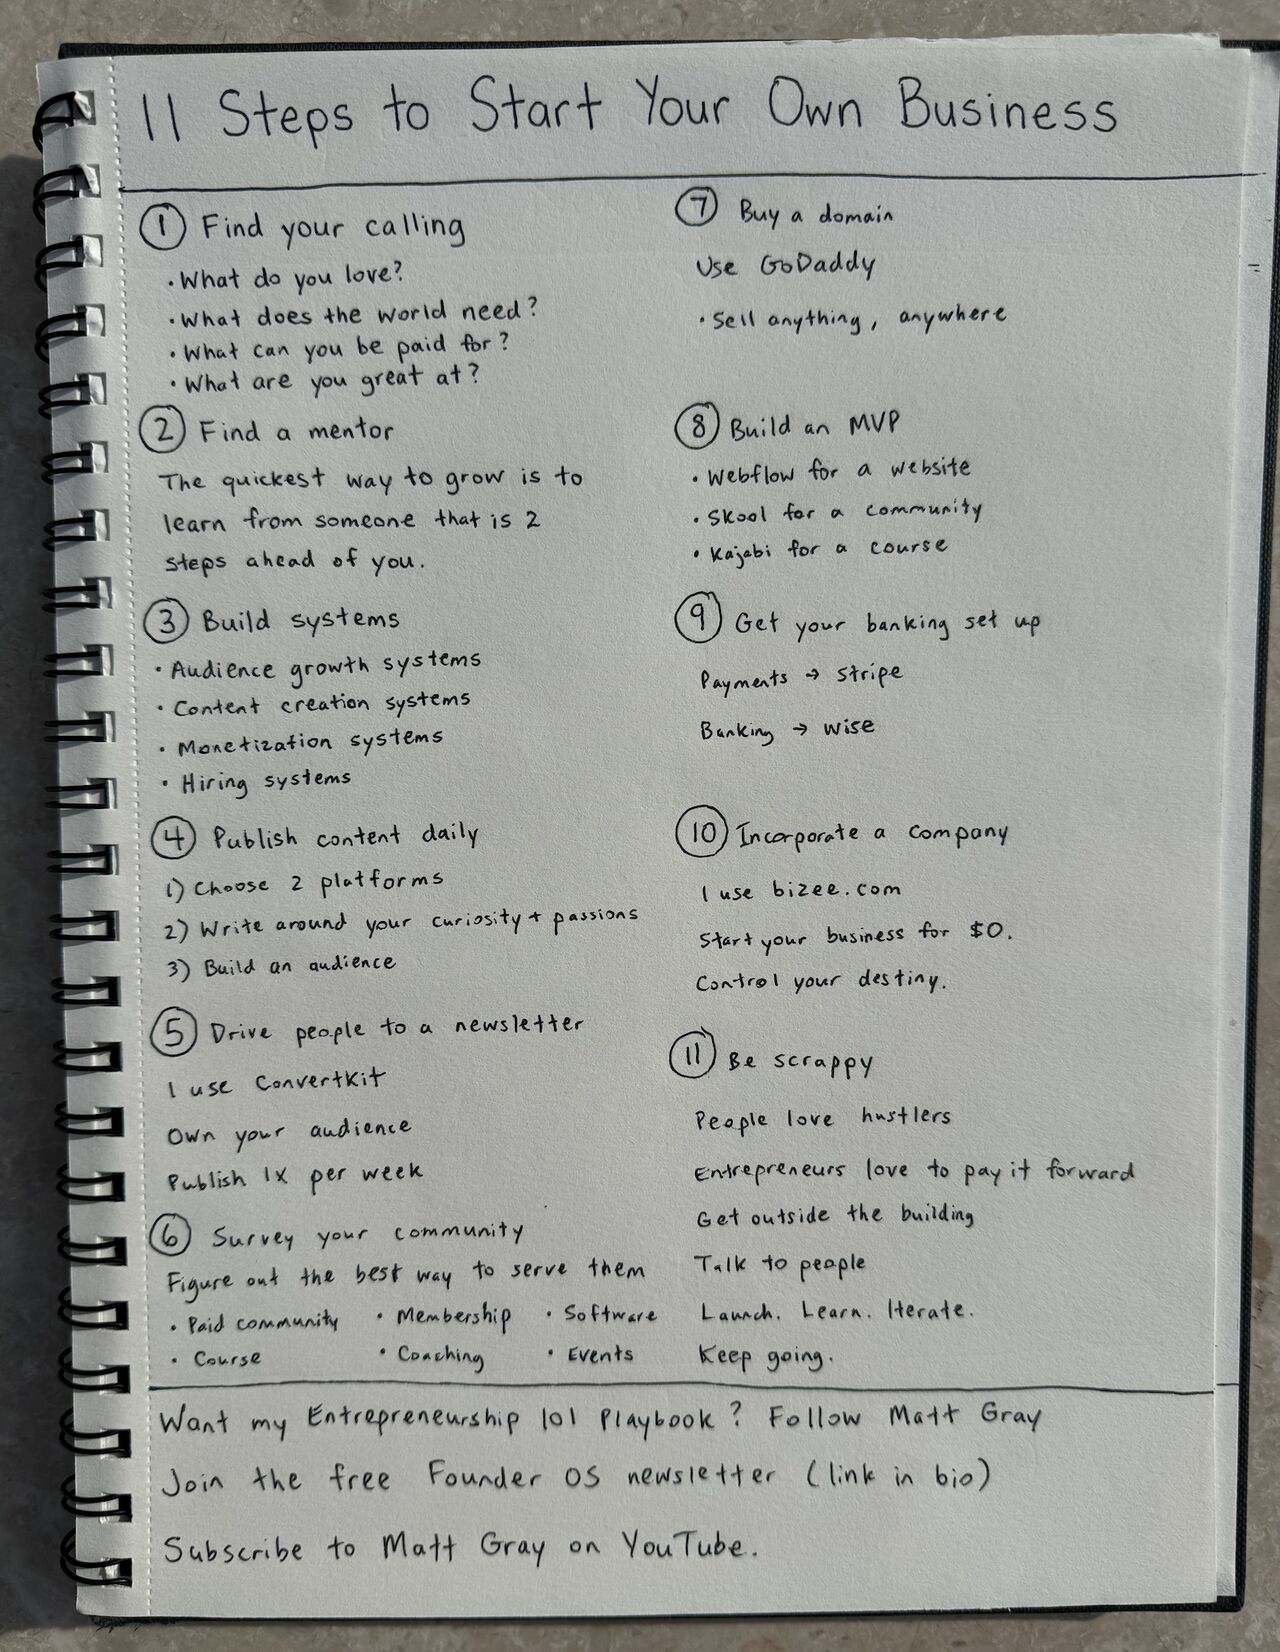 11 Steps to Start Your Own Business
1 Find your calling
• What do you love?
• What does the world need?
• What can you be paid for?
• What are you great at?
2 Find a mentor
The quickest way to grow is to
learn from someone that is 2
steps ahead of you.
3 Build systems
• Audience growth systems
• Content creation systems
• Monetization systems
• Hiring systems
4 Publish content daily
1) Choose 2 platforms
2) Write around your curiosity + passions
3) Build an audience
5 Drive people to a newsletter
I use ConvertKit
Own your audience
Publish 1x per week
6 Survey your community
Figure out the best way to serve them
• Paid community • Membership • Software
• Course • Coaching • Events
7 Buy a domain
Use GoDaddy
• Sell anything, anywhere
8 Build an MVP
• Webflow for a website
• Skool for a community
• Kajabi for a course
9 Get your banking set up
Payments → Stripe
Banking → Wise
10 Incorporate a company
I use bizee.com
Start your business for $0.
Control your destiny.
11 Be scrappy
People love hustlers
Entrepreneurs love to pay it forward
Get outside the building
Talk to people
Launch. Learn. Iterate.
Keep going.
Want my Entrepreneurship 101 Playbook? Follow Matt Gray
Join the free Founder OS newsletter (link in bio)
Subscribe to Matt Gray on YouTube.